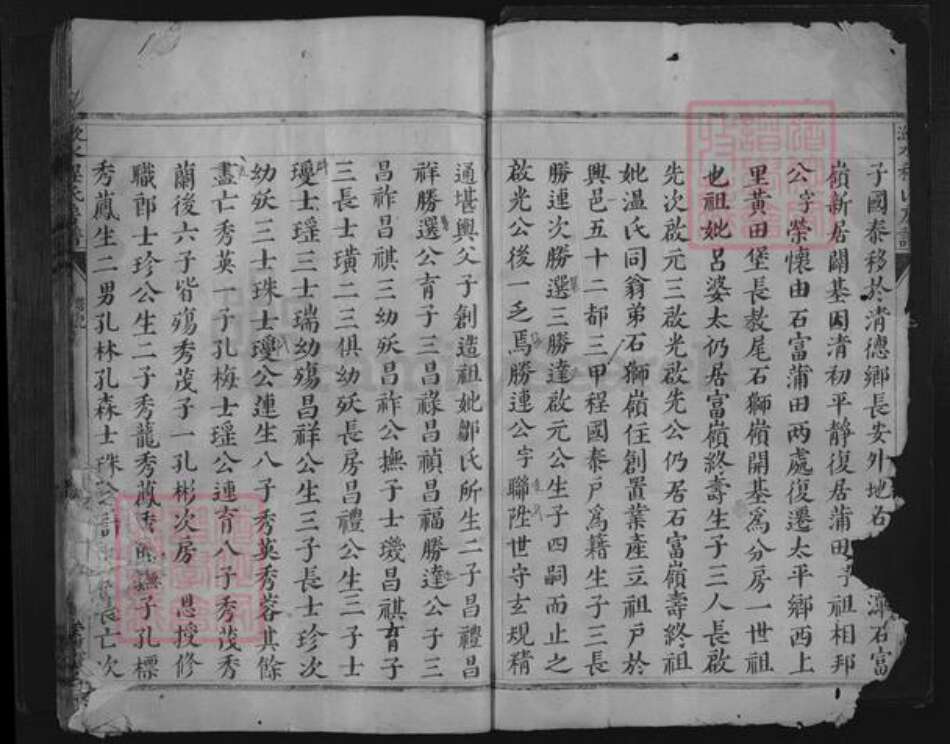 子國泰移於清德鄉長安外地名石富
嶺新居闢基因清初平靜復居蒲田祖相邦
公字榮懷由石富蒲田兩處復遷太平鄉西上
里黃田堡長教尾石獅嶺開基為分房一世祖
也祖妣呂婆太仍居富嶺終壽生子三人長啟
先次啟元三啟光啟先公仍居石富嶺壽終祖
妣溫氏同翁弟石獅嶺住創置業產立祖戶於
興邑五十二都三甲程國泰戶為籍生子三長
勝連次勝選三勝達啟元公生子四嗣而止之
啟光公後一乏焉勝連公字聯陞世守玄規精
通堪輿父子創造祖妣鄒氏所生二子昌禮昌
祥勝選公育子三昌祿昌禎昌福勝達公子三
昌祚昌祺三幼殀昌祚公撫子士璣昌祺育子
三長士璜二三俱幼殀長房昌禮公生三子士
瓊士瑶三士瑞幼殤昌祥公生三子長士珍次
幼殀三士珠士瓊公連生八子秀英秀蓉其餘
盡亡秀英一子孔梅士瑶公連育八子秀茂秀
蘭後六子皆殤秀茂子一孔彬次房 恩授修
職郎士珍公生二子秀龍秀鳳秀龍撫子孔標
秀鳳生二男孔林孔森士珠公 長亡次